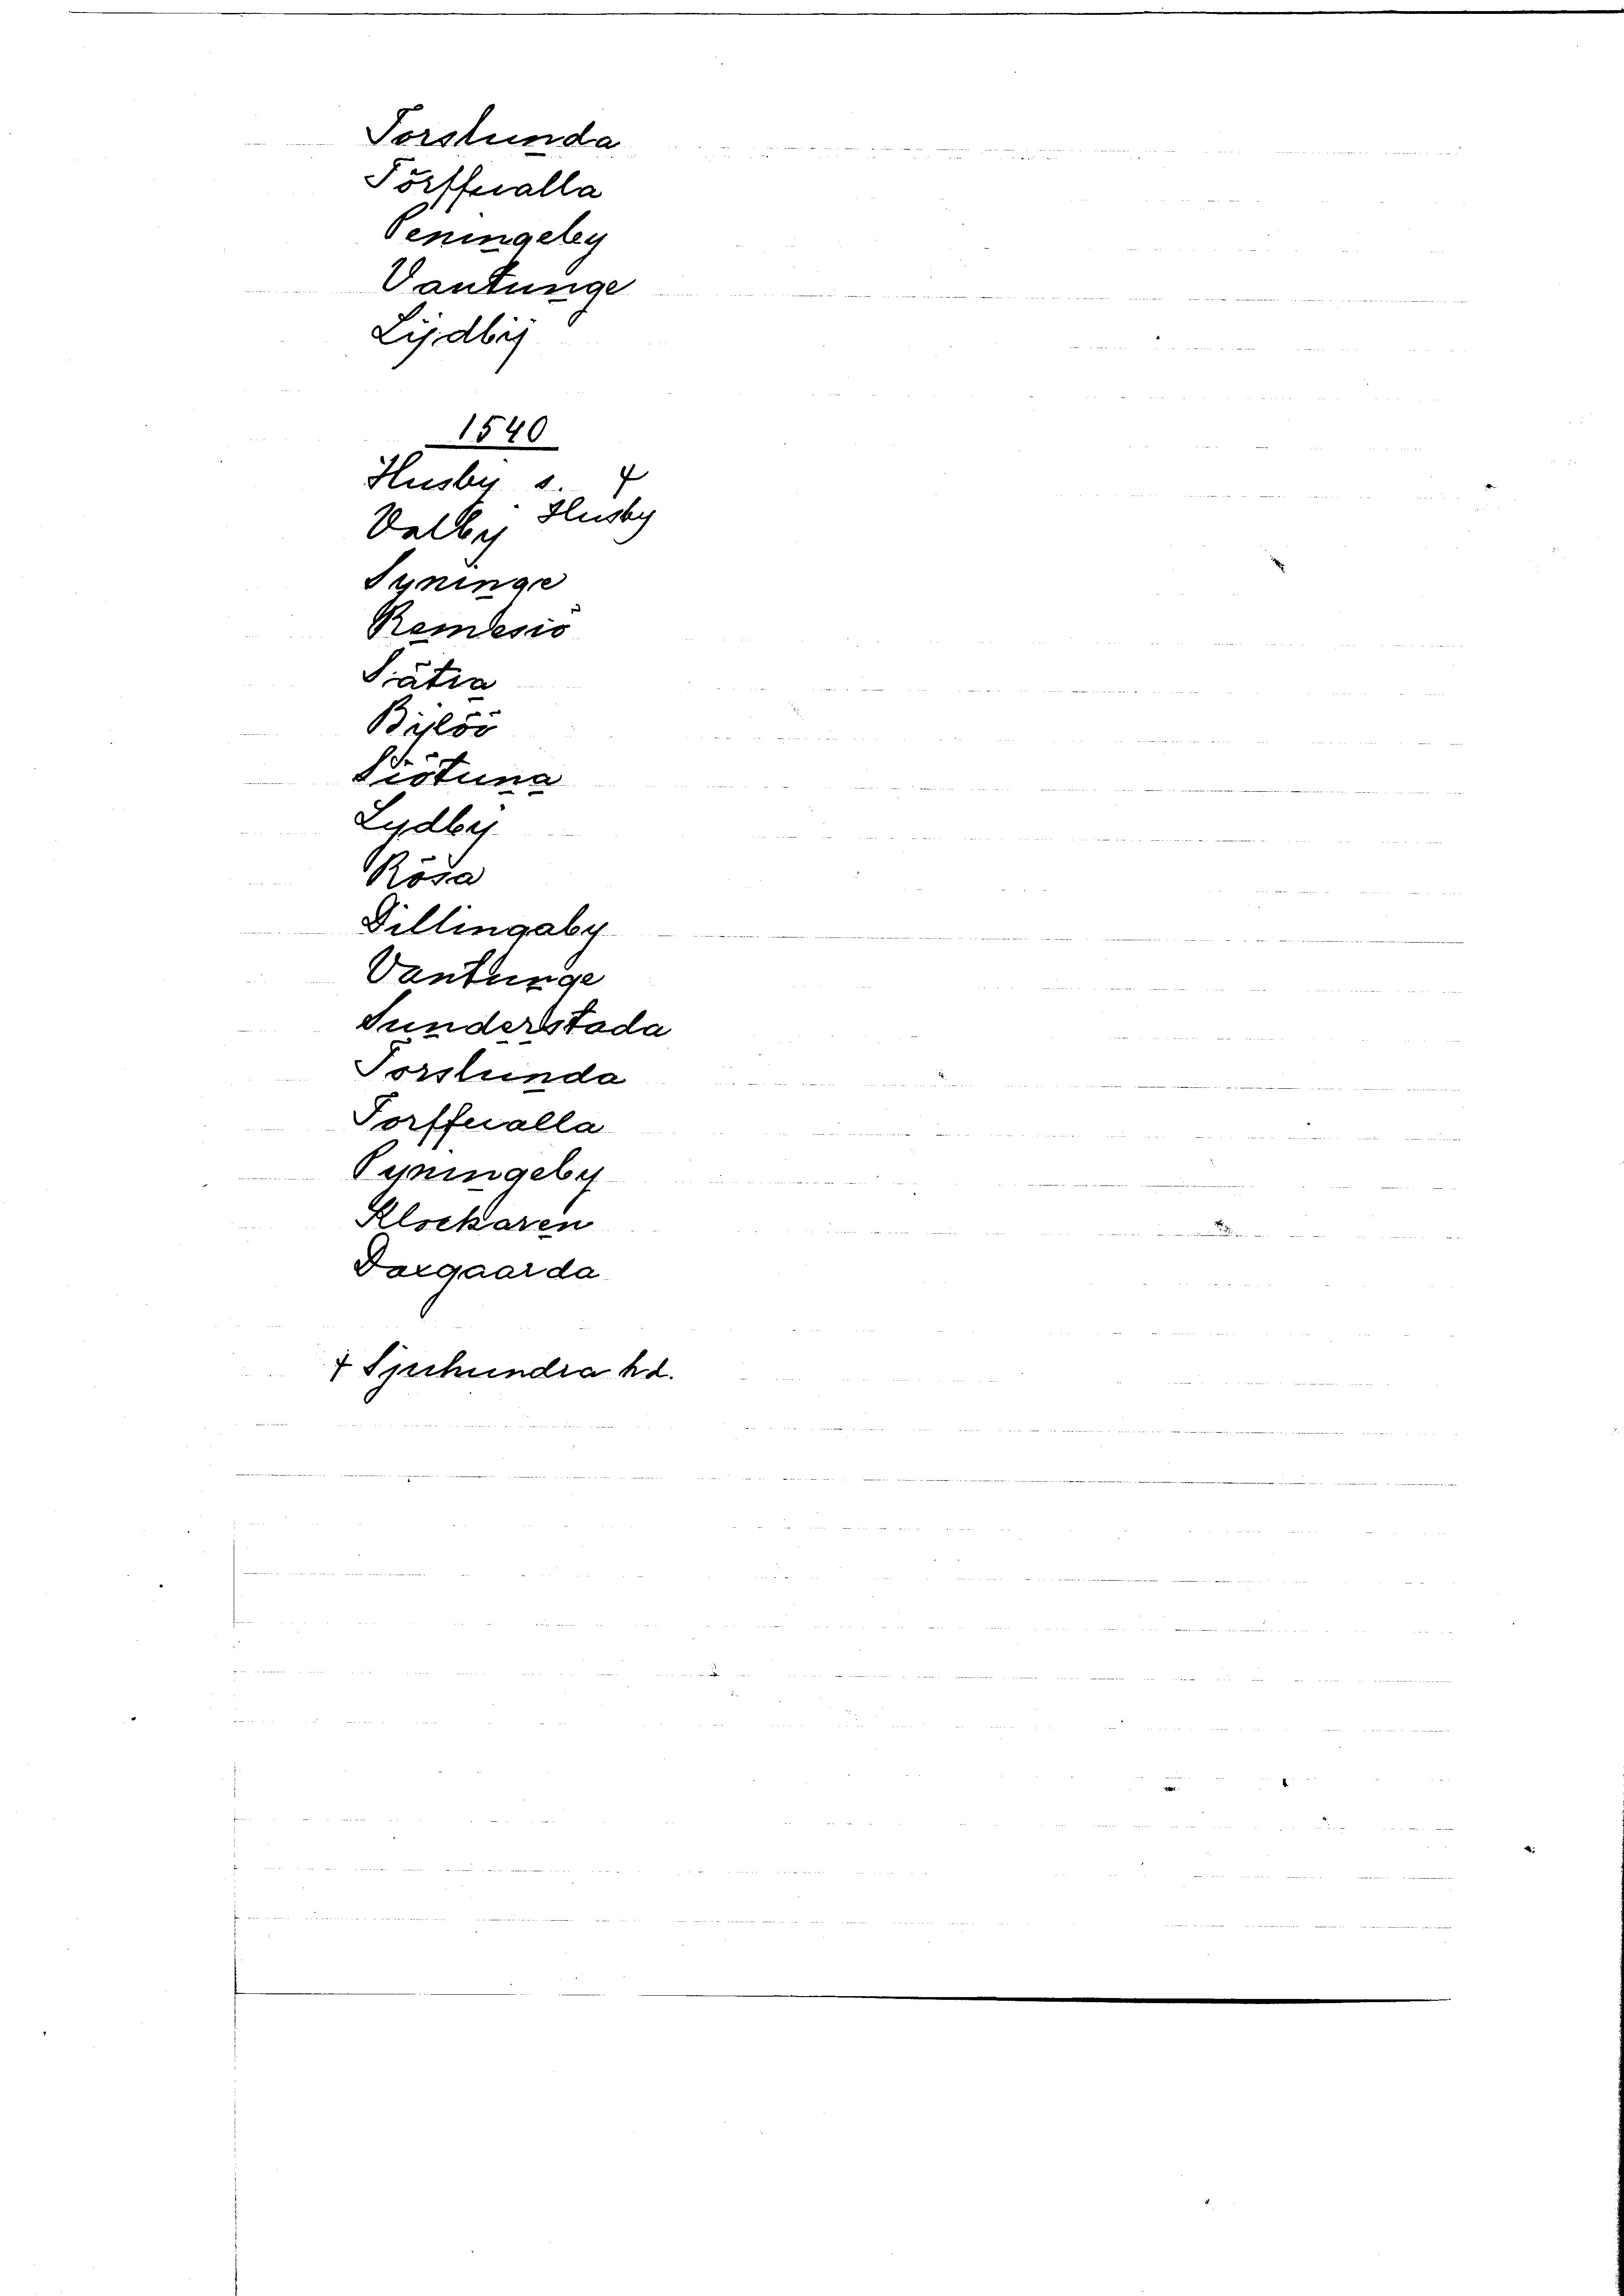 Torslunda
Törffwalla
Peningeby
Vantunge
Lijdbij
1540
Husby s. 7
Valby Husby
Syninge
Remdesiö
Siätra
Bijlöö
Siötuna
Lydby
Rösa
Dillingaby
Vantunge
Sunderstada
Torslunda
Torffwalla
Pyningeby
Klockaren
Dargaarda
7 Sjuhundra hd.